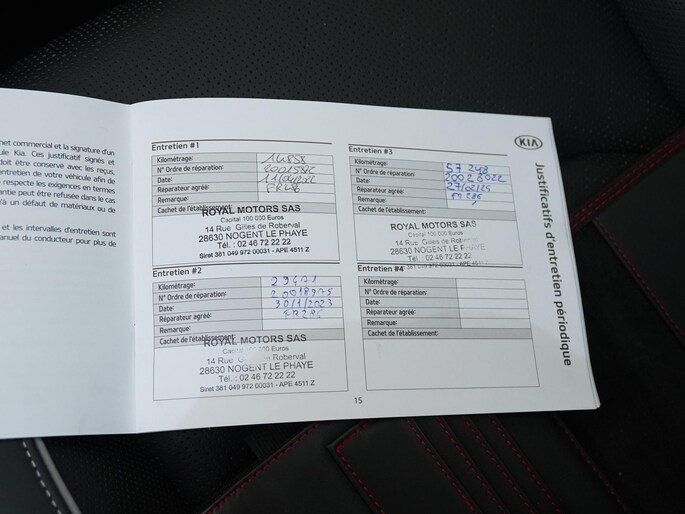 het commercial et la signature d'un
ule Kia. Ces justificatif signés et
doit être conservé avec les reçus,
entretien de votre véhicule afin de
respecte les exigences en termes
rantie peut être refusée dans le cas
là un défaut de matériaux ou de
et les intervalles d'entretien sont
anuel du conducteur pour plus de
KIA
Justificatifs d'entretien périodique
Entretien #1
Kilométrage: 14858
N° Ordre de réparation:
Date:
Réparateur agréé: FR286
Remarque:
Cachet de l'établissement:
ROYAL MOTORS SAS
Capital 100 000 Euros
14 Rue Gilles de Roberval
28630 NOGENT LE PHAYE
Tél. : 02 46 72 22 22
Siret 381 049 972 00031 - APE 4511 Z
Entretien #2
Kilométrage: 29471
N° Ordre de réparation: 20018975
Date: 30/1/2023
Réparateur agréé: FR286
Remarque:
Cachet de l'établissement:
ROYAL MOTORS SAS
Capital 100 000 Euros
14 Rue Gilles de Roberval
28630 NOGENT LE PHAYE
Tél. : 02 46 72 22 22
Siret 381 049 972 00031 - APE 4511 Z
Entretien #3
Kilométrage: 57 248
N° Ordre de réparation: 20028022
Date: 27/02/25
Réparateur agréé: FR286
Remarque:
Cachet de l'établissement:
ROYAL MOTORS SAS
Capital 100 000 Euros
14 Rue Gilles de Roberval
28630 NOGENT LE PHAYE
Tél. : 02 46 72 22 22
Siret 381 049 972 00031 - APE 4511 Z
Entretien #4
Kilométrage:
N° Ordre de réparation:
Date:
Réparateur agréé:
Remarque:
Cachet de l'établissement:
15